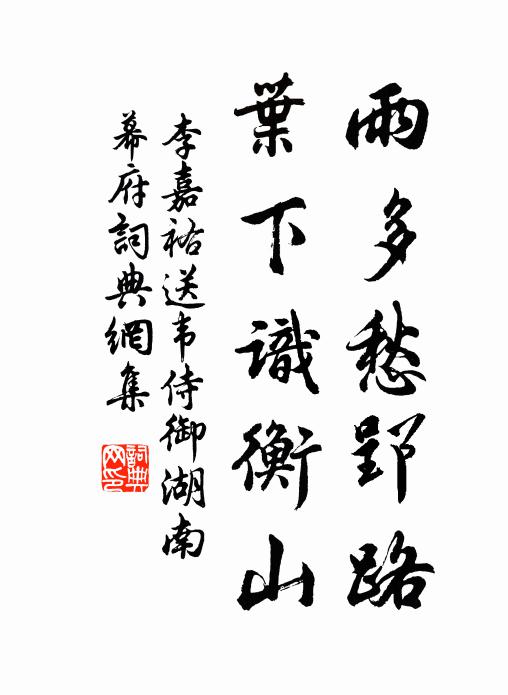 雨多愁郢路
葉下識衡山
李嘉祐送韦侍御湖南
幕府詞典網集
詞典
网印